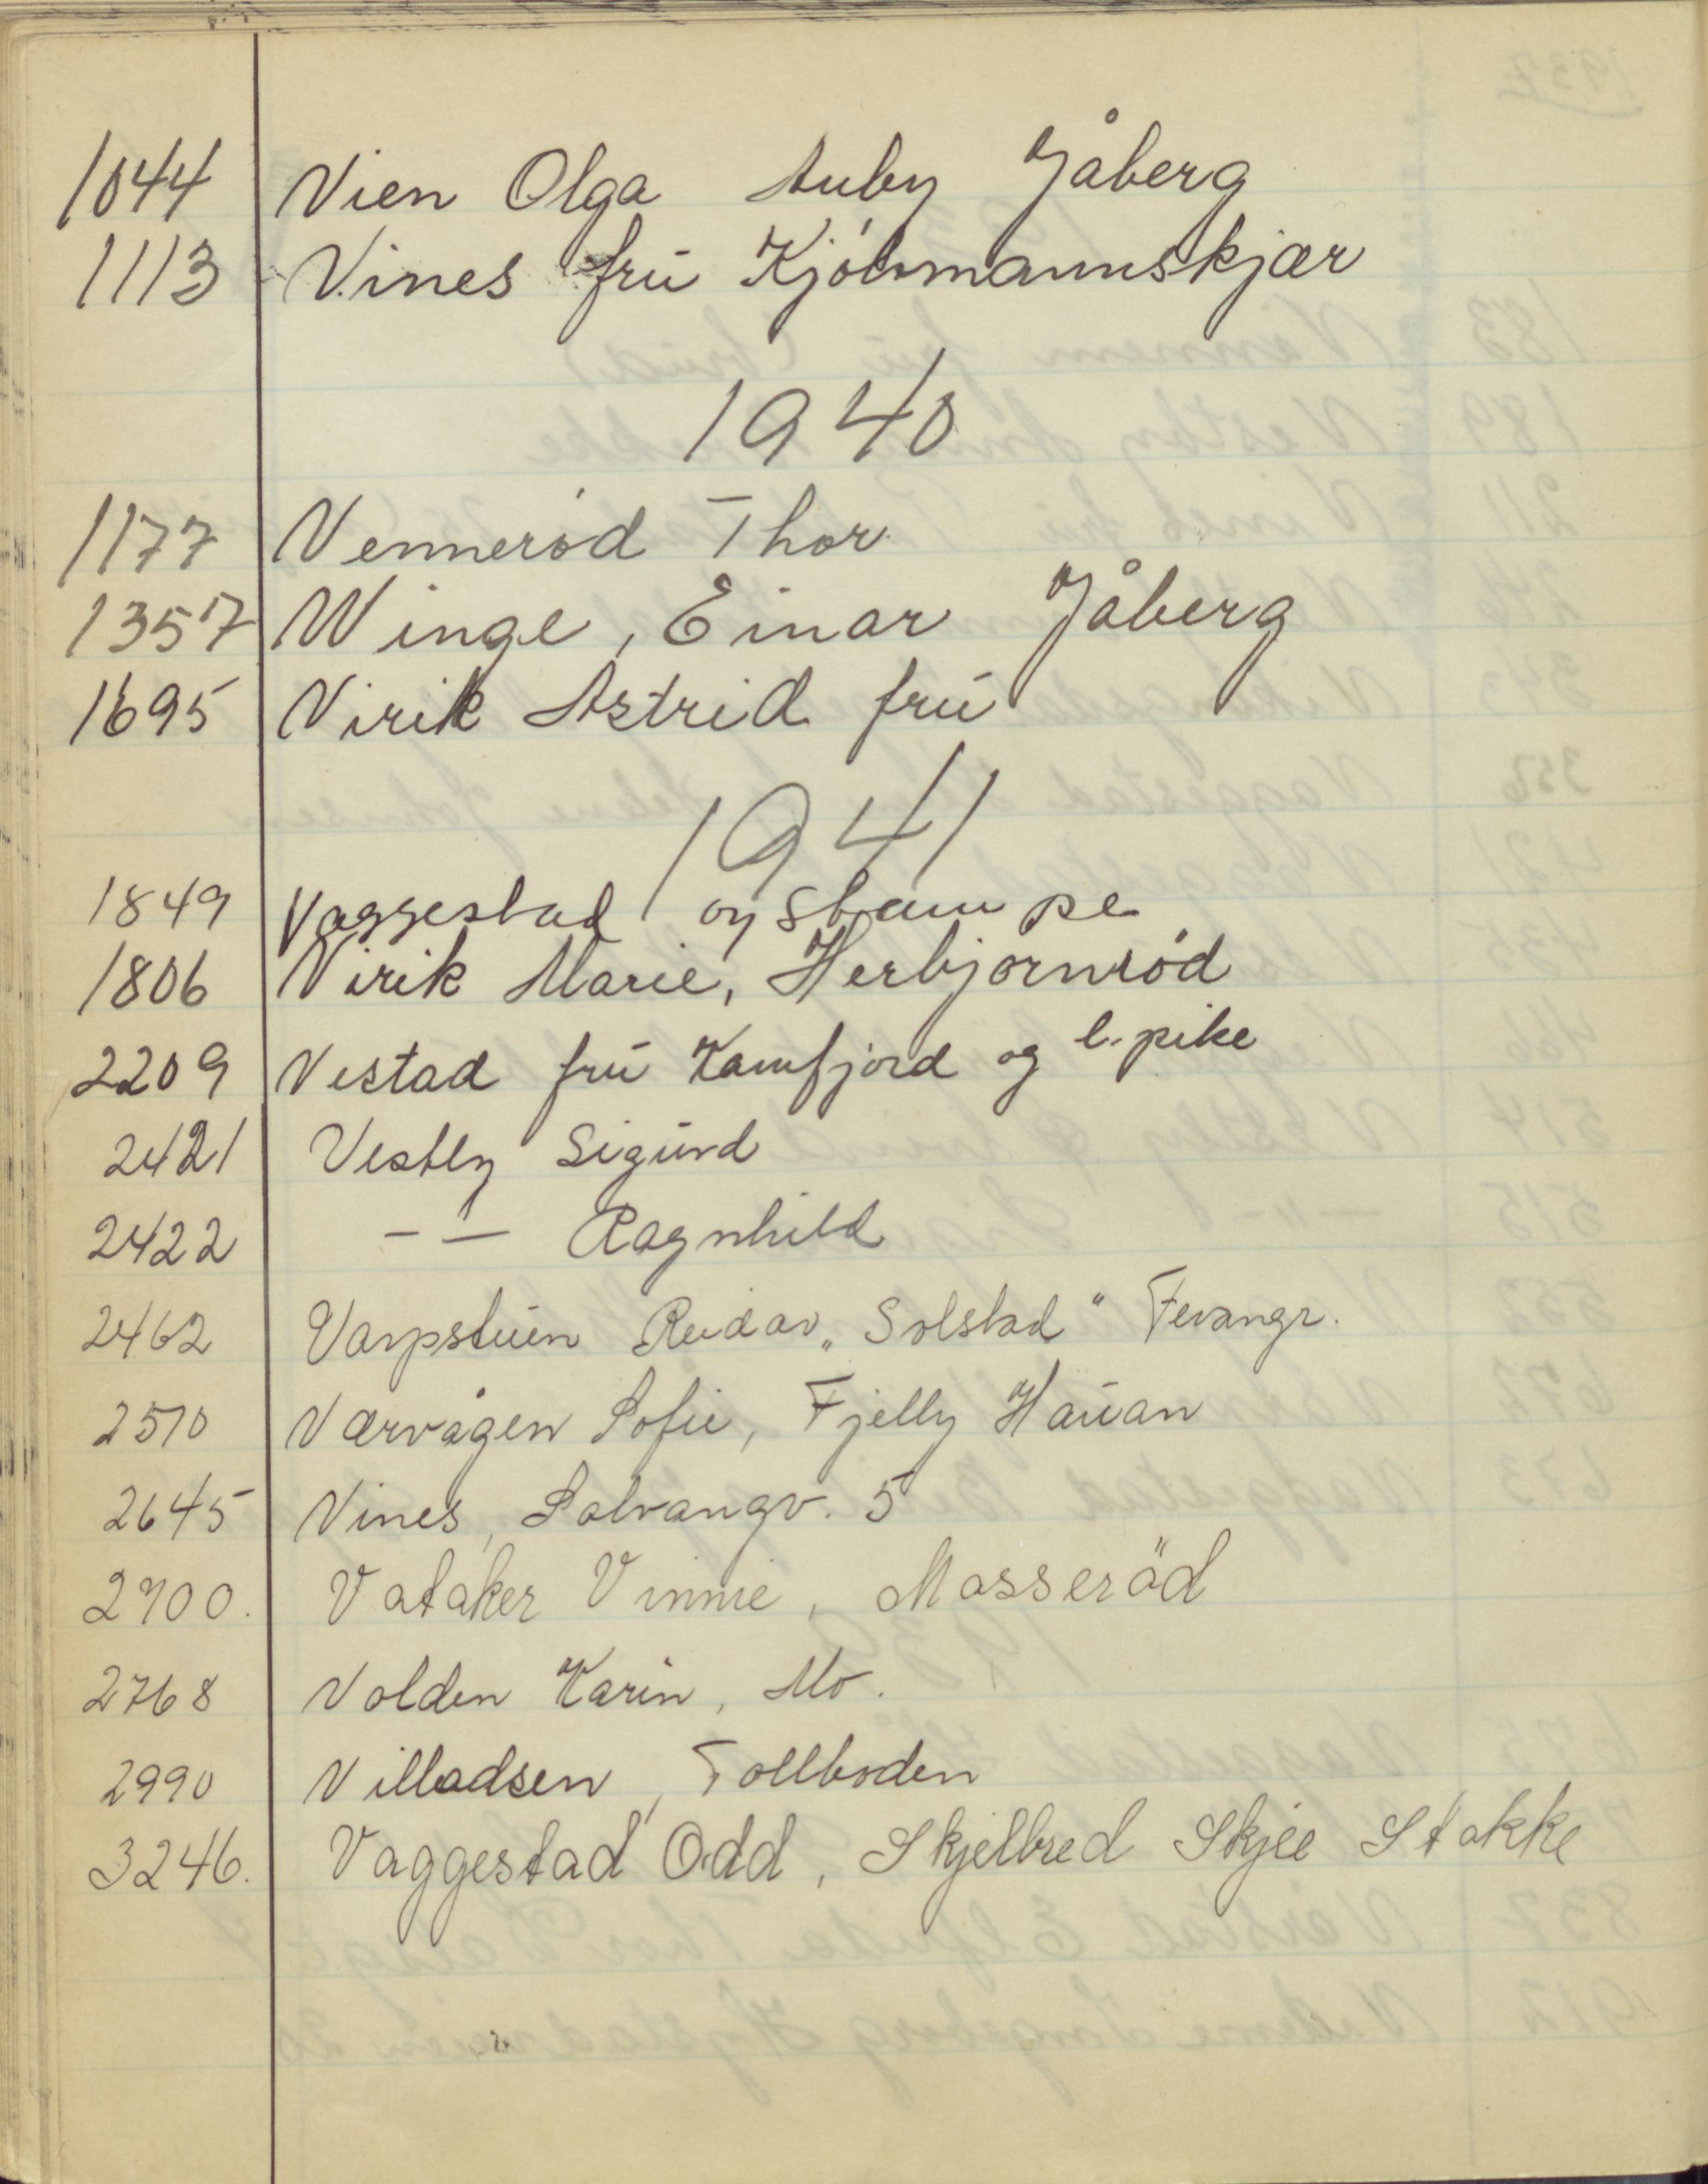 1044 Vien Olga Auby Jåberg
1113 Vines frú Kjólsmannskjær
1940
1177 Venneród Thor
1357 Winge, Einar Jåberg
1695 Virik Astrid frú
1941
1849 Vaggestad og Stampe
1806 Virik Marie, Herbjornród
2209 Vestad frú Kamfjord og l. pike
2421 Vestly Sigúrd
2422 - - Ragnhild
2462 Varpstúen Reidar „Solstad" Fevangr.
2570 Værvågen Sofie, Fjelly Haúan
2645 Vines, Solvangv. 5
2700. Vataker Vinnie, Masseröd
2768 Volden Karin, Mo.
2990 Villadsen, Tollboden
3246. Vaggestad Odd, Skjelbred Skjee Stokke